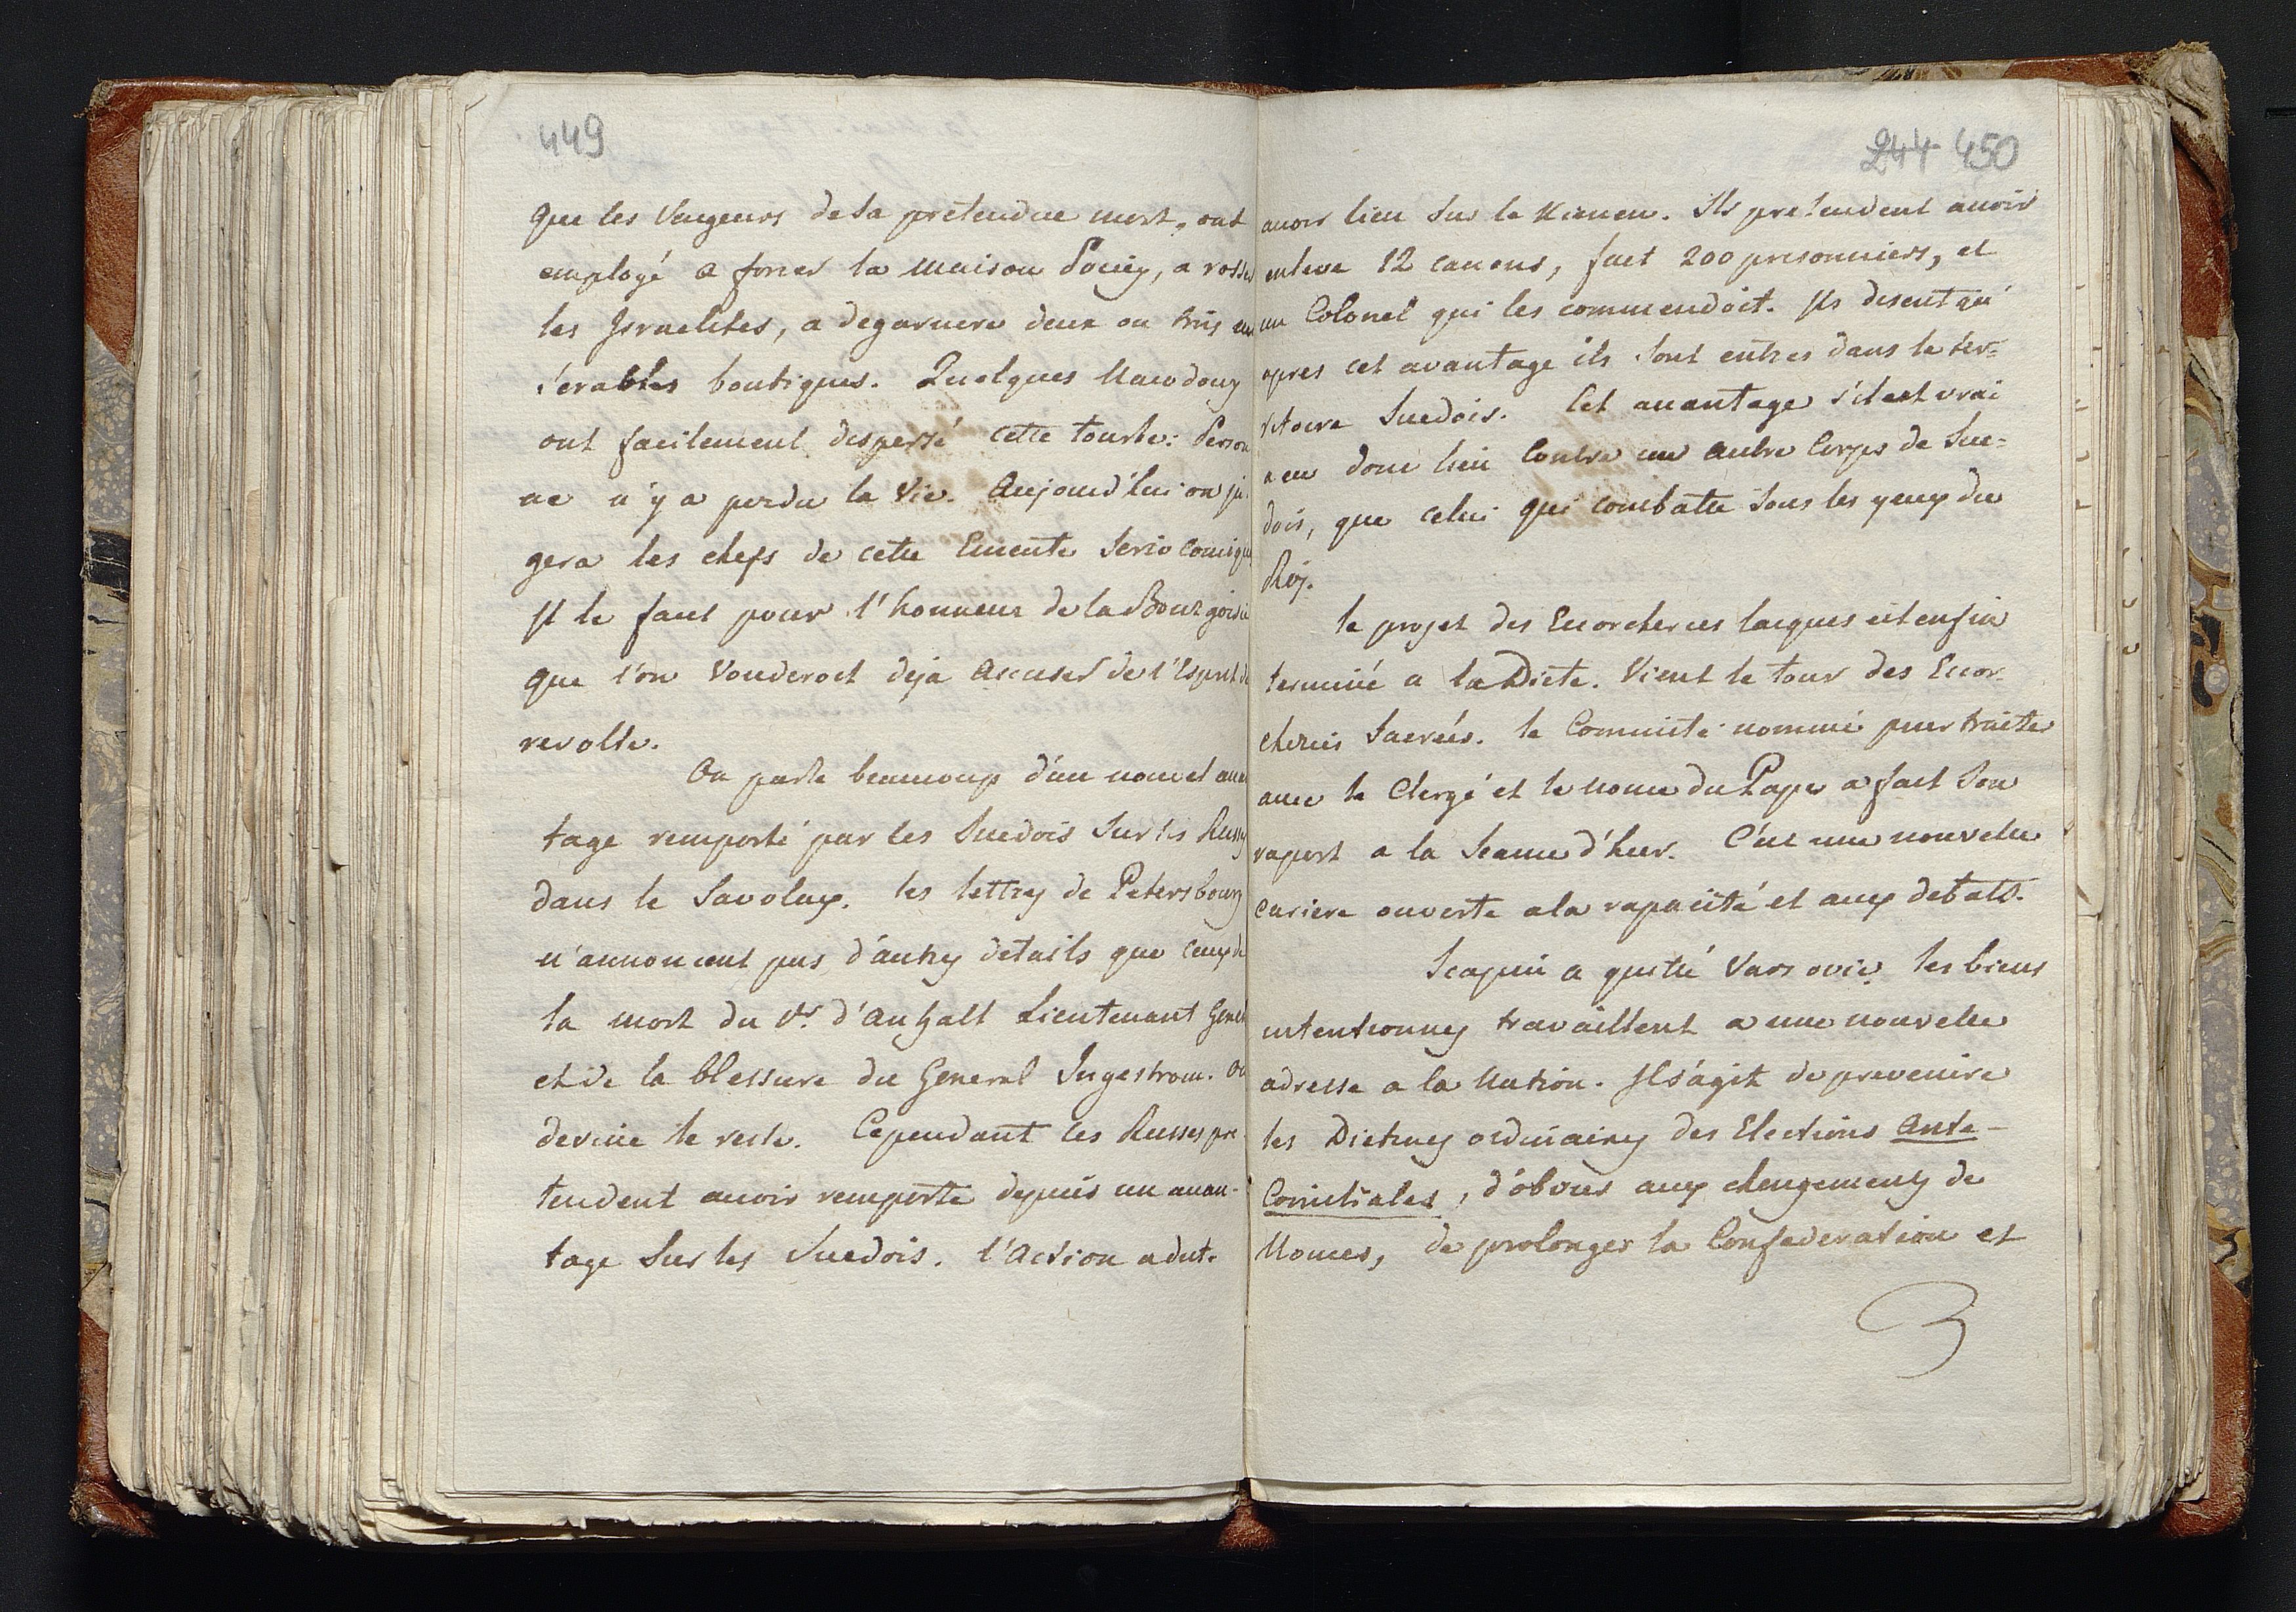 449
que les Vengeurs de sa pretendue mort, ont
employé a forcer la maison Pociey, a rosser
les Israelites, a degarnire deux ou trois
s'erables boutiques. Quelques
ont facilement dispersé cette tourbe: Person
ne n'y a perdu la vie. Aujourd'hui on ju
gera les chefs de cette Emeute serio comique
Il le faut pour l'honneur de la Bourgoisie
que l'on Vouderoit deja accuser de l'Esprit de
revolte.
On parle beaucoup d'un nouvel avan
tage remporté par les Suedois sur les Russes
dans le Savolax. les lettres de Petersbourg
n'annoncent pas d'autres details que ceux de
la mort du d'Anhalt Lieutenant General
et de la blessure du General Ingestrom. On
devine le reste. Cependant les Russes pre
tendent avoir remporté depuis un avan-
tage sur les Suedois. l'Action a dut
244 450
avoir lieu sur le Kienen. Ils pretendent avoir
enleve 12 canons, fait 200 prisonniers, et
un Colonel qui les commendoit. Ils disent qu'
apres cet avantage ils sont entres dans le ter=
ritoire Suedois. Cet avantage s'il est vrai
a eu donc lieu Contre un autre Corps de Sue=
dois, que celui qui combatte sous les yeux du
Roy.
le projet des Ecorcheries laiques est enfin
terminé a la Diete. Vient le tour des Ecor
cheries Sacrées. le Committé nommé pour traiter
avec le Clergé et le nonce du Pape a fait son
raport a la Seance d'hier. C'est une nouvelle
cariere ouverte a la rapacité et aux debats.
Scapin a quitté Varsovie. les biens
intentionnes travaillent a une nouvelle
adresse a la Nation. Il s'agit de prevenire
les Dietines ordinaires des Elections Ante-
Comitiales, d'obvier aux chengements de
Nonces, de prolonger la Confederation et